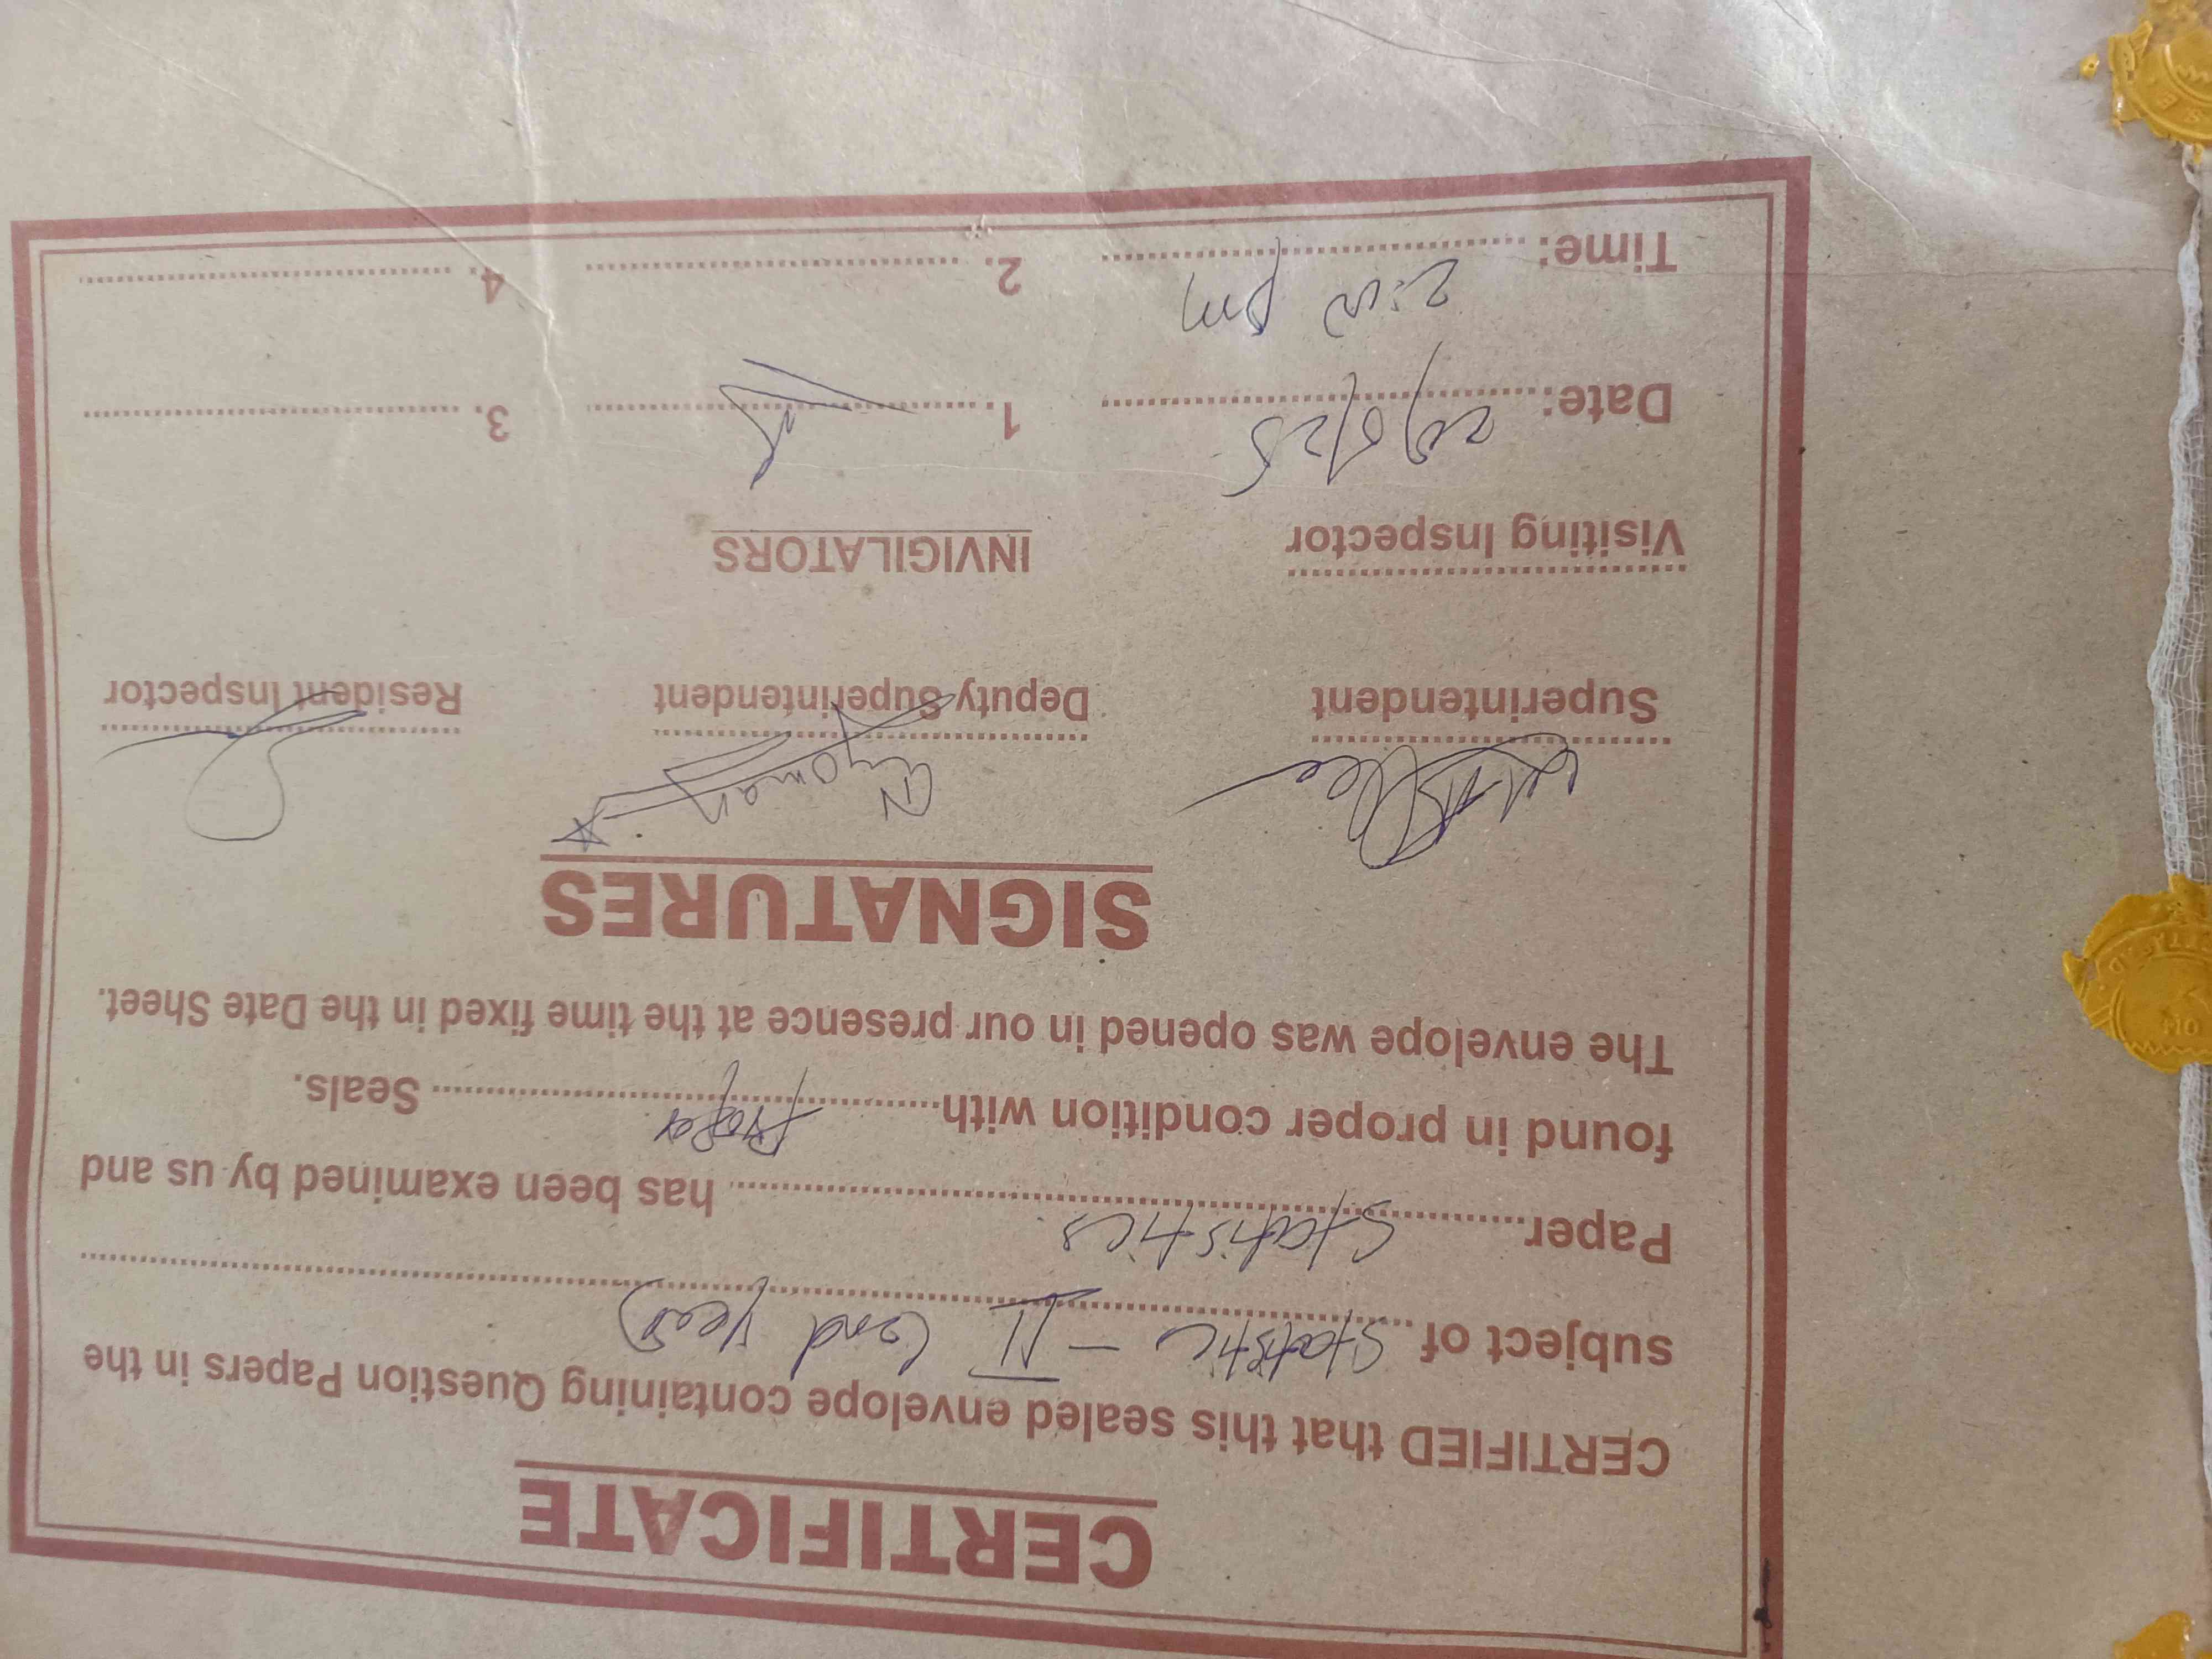 CERTIFICATE
CERTIFIED that this sealed envelope containing Question Papers in the
subject of Statistic - II (2nd Year)
Paper Statistics has been examined by us and
found in proper condition with Proper Seals.
The envelope was opened in our presence at the time fixed in the Date Sheet.
SIGNATURES
Superintendent Deputy Superintendent Resident Inspector
Visiting Inspector INVIGILATORS
Date: 1. 3.
Time: pm 2. 4.